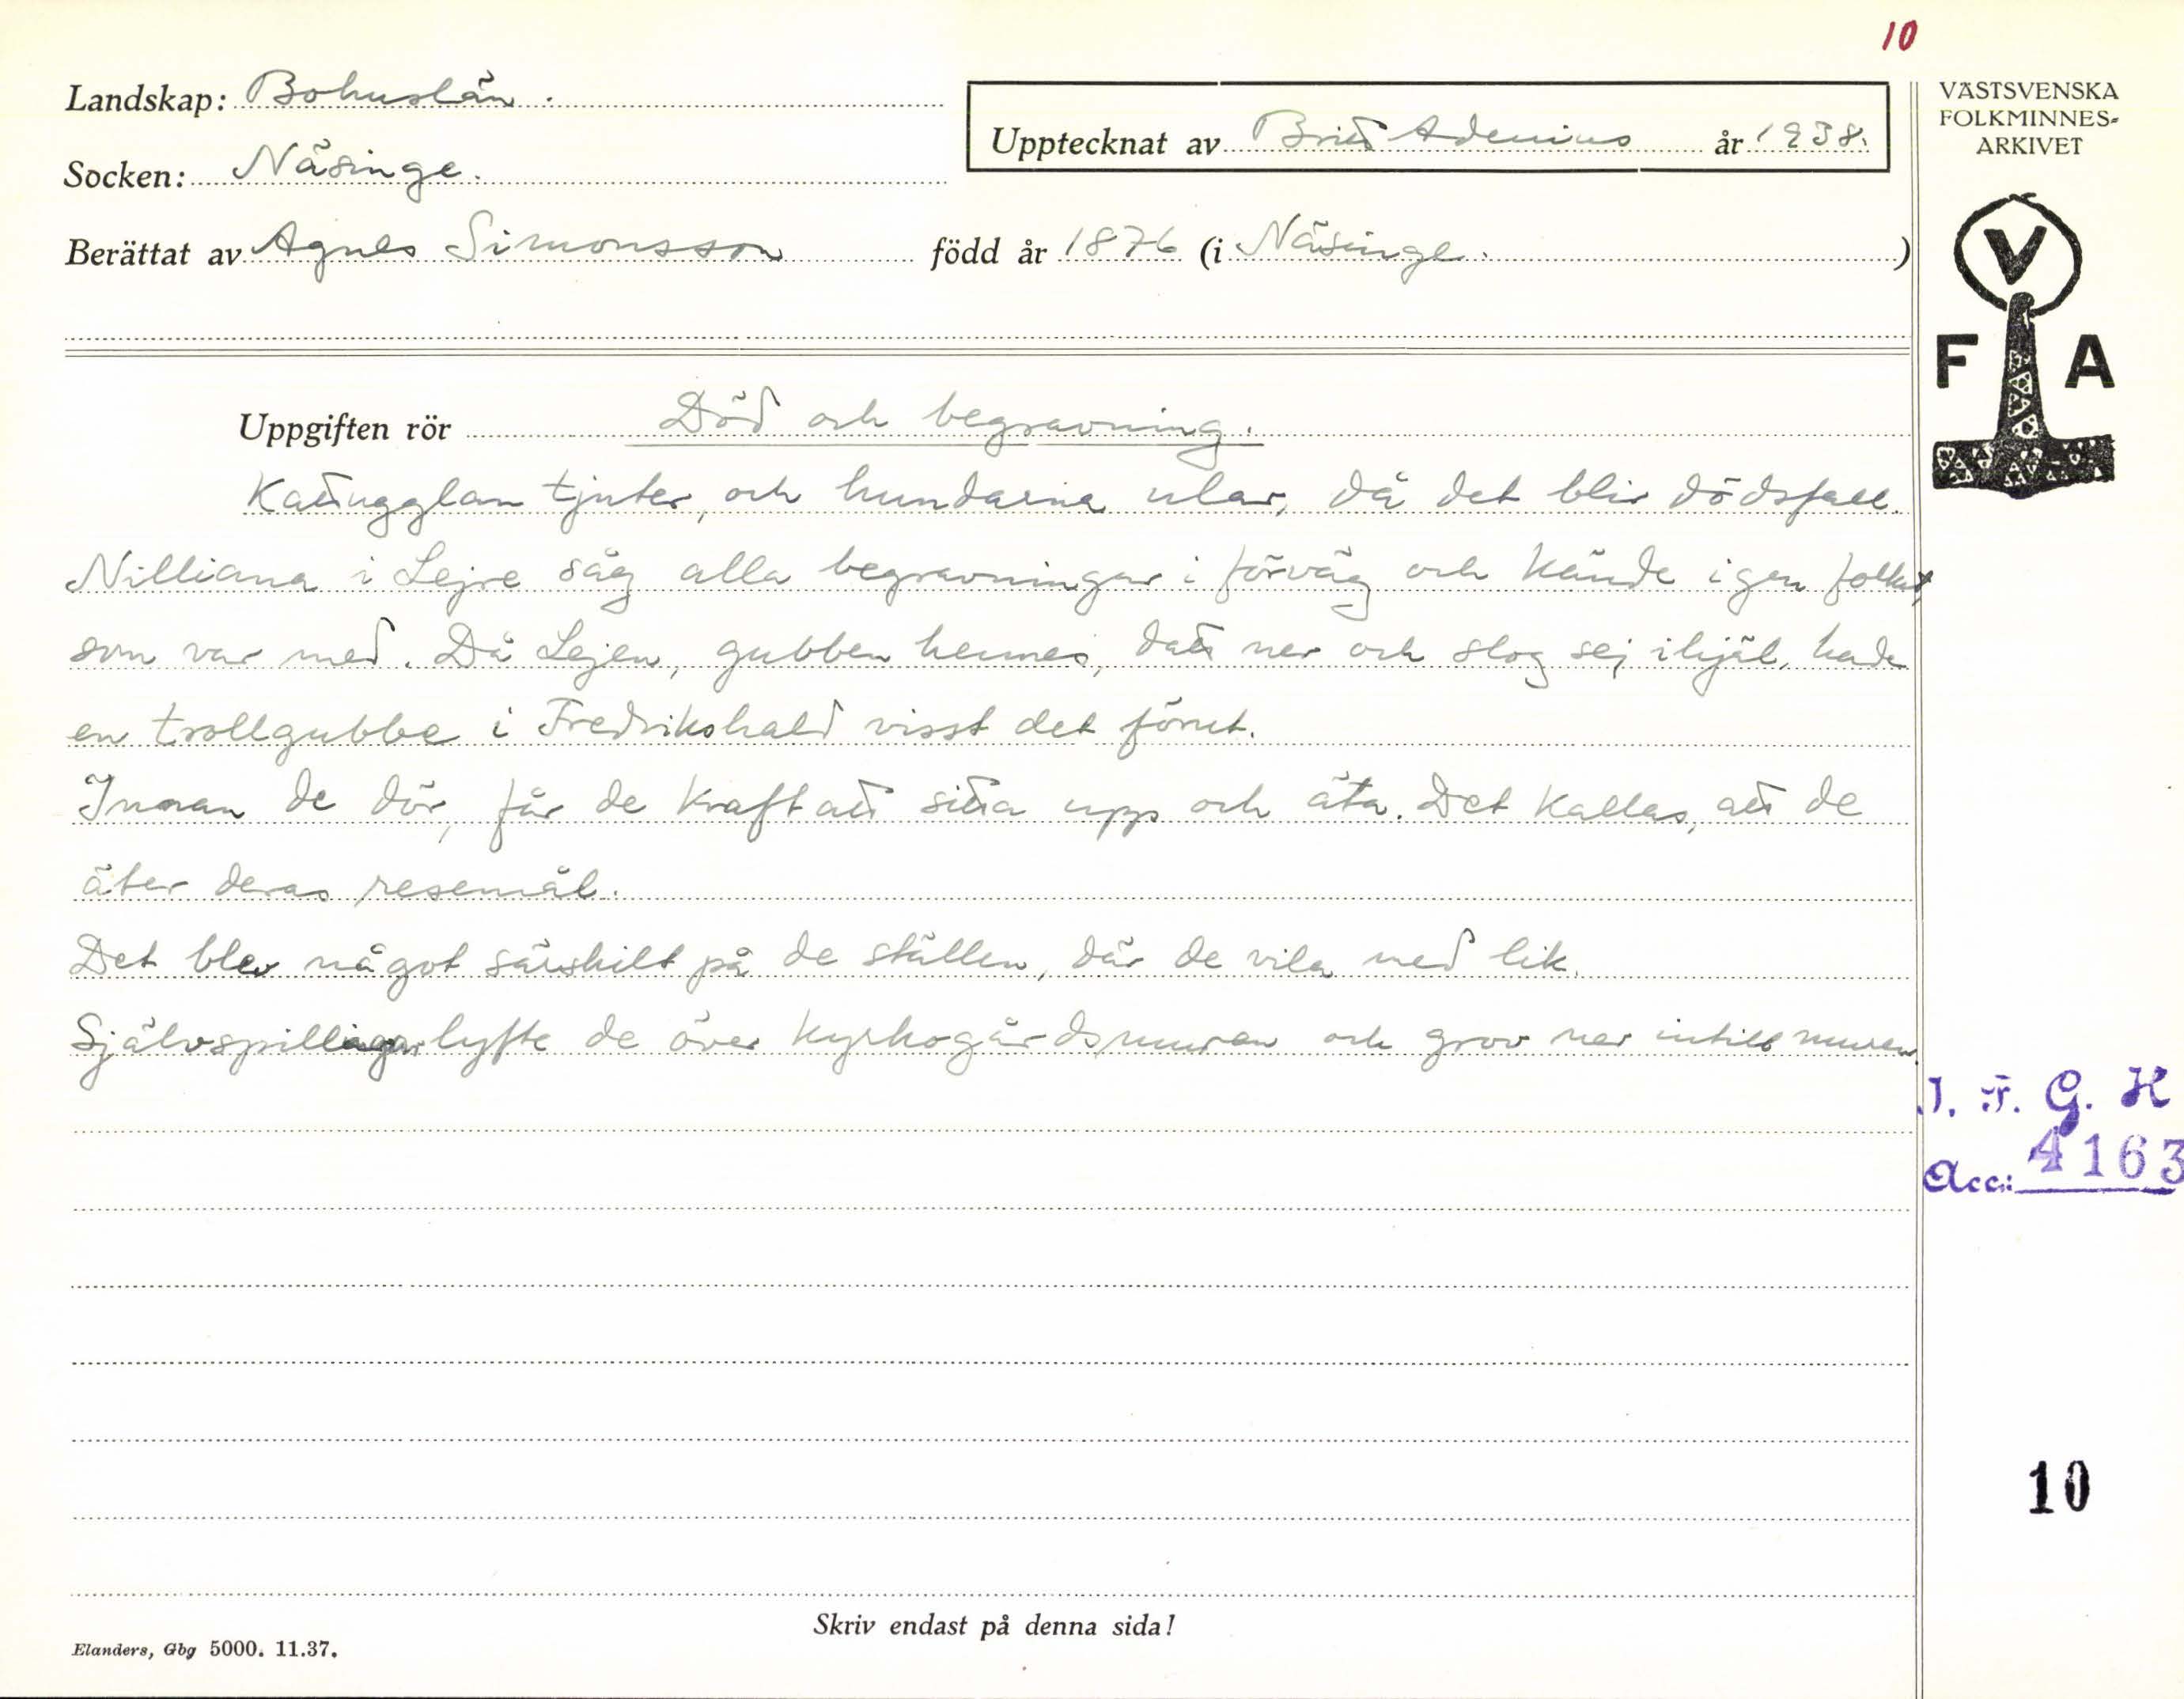 10
Landskap: Bohuslän.
Upptecknat av Britt Adenius år 1938.
VÄSTSVENSKA
FOLKMINNES-
ARKIVET
Socken: Näsinge.
Berättat av Agnes Simonsson född år 1876 (i Näsinge. )
V
F A
Uppgiften rör Död och begravning.
Kattugglan tjuter, och hundarna ular, då det blir dödsfall.
Nilliana i Lejre såg alla begravningar i förväg och kände igen folket,
som var med. Då Lejen, gubben hennes, datt ner och slog sej ihjäl, hade
en trollgubbe i Fredrikshald visst det förut.
Innan de dör, får de kraft att sitta upp och äta. Det kallas, att de
äter deras resemål.
Det blev något särskilt på de ställen, där de vila med lik.
Självspillingar lyfte de över kyrkogårdsmuren och grov ner intill muren.
I. F. G. H
Acc: 4163
10
Skriv endast på denna sida!
Elanders, Gbg 5000. 11.37.